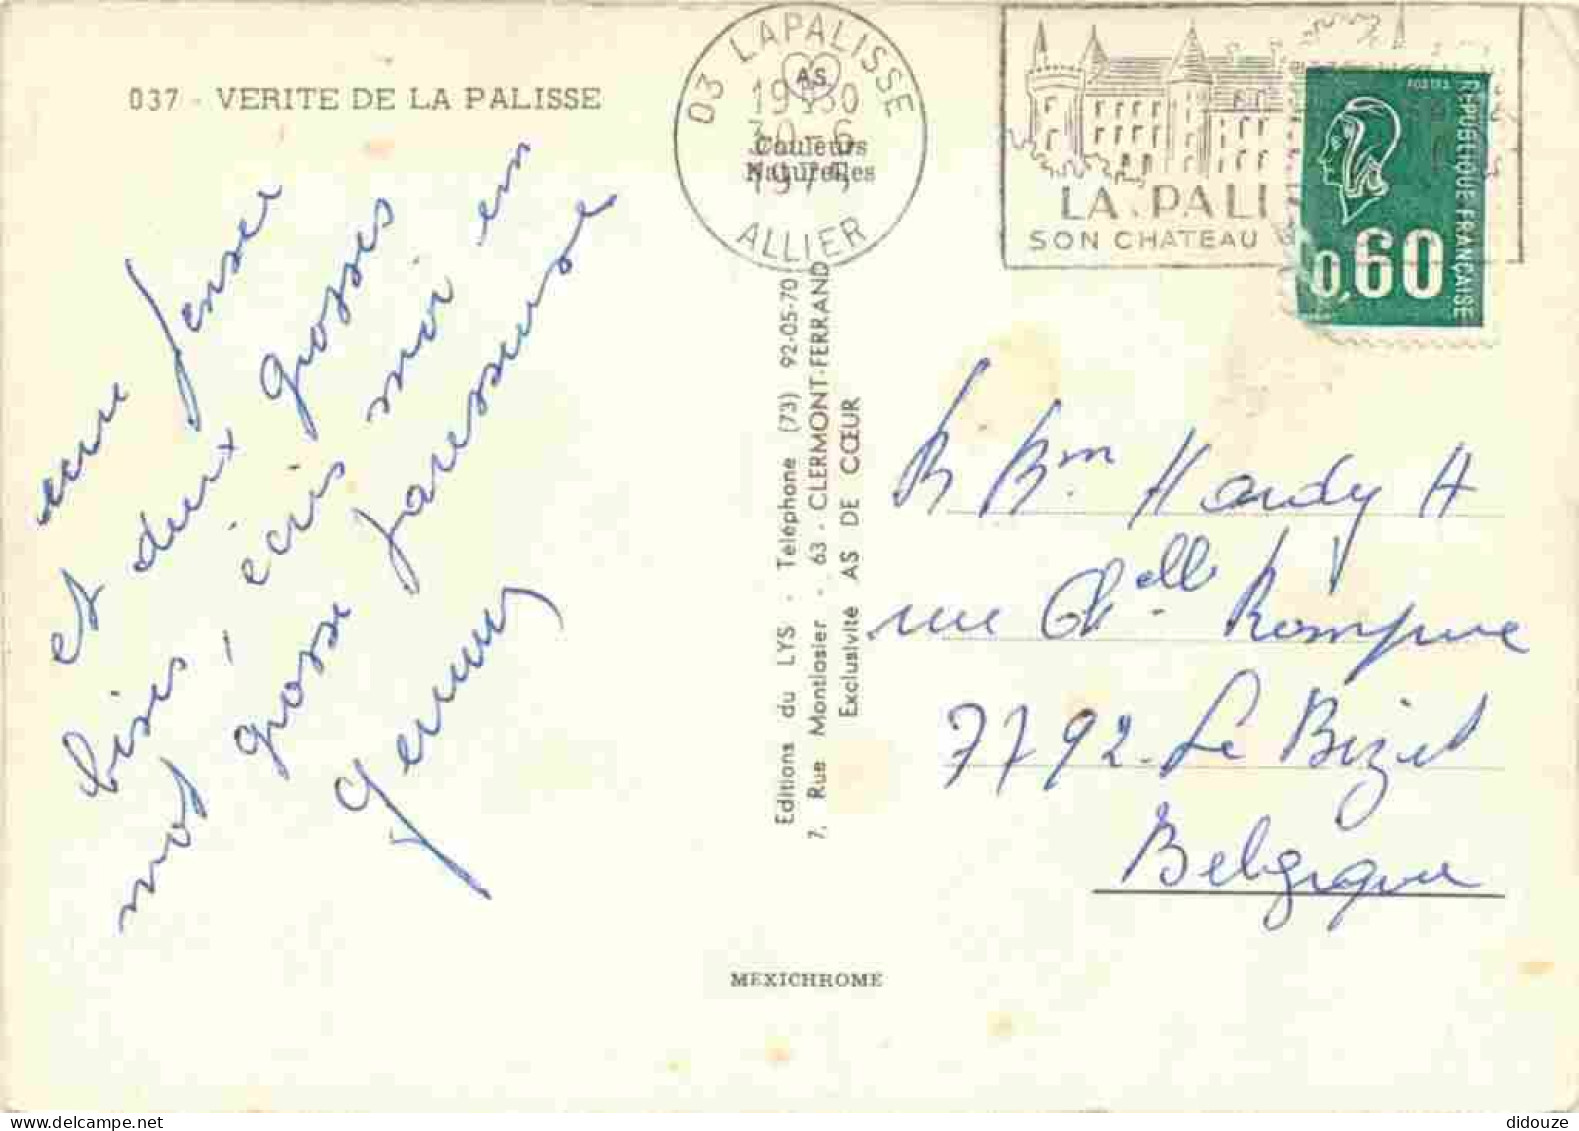 037 - VERITE DE LA PALISSE
03 LAPALISSE
A.S.
19H30
30-6
1975
Couleurs
Naturelles
ALLIER
LA PALI
SON CHATEAU
POSTES
REPUBLIQUE FRANÇAISE
0,60
une pensée
et deux grosses
bises, écris moi un
mot grosse paresseuse
Editions du LYS - Téléphone (73) 92-05-70
7, Rue Montlosier - 63 - CLERMONT-FERRAND
Exclusivité AS DE CŒUR
Hardy A
rue
7792 - Le Bizet
Belgique
MEXICHROME
didouze